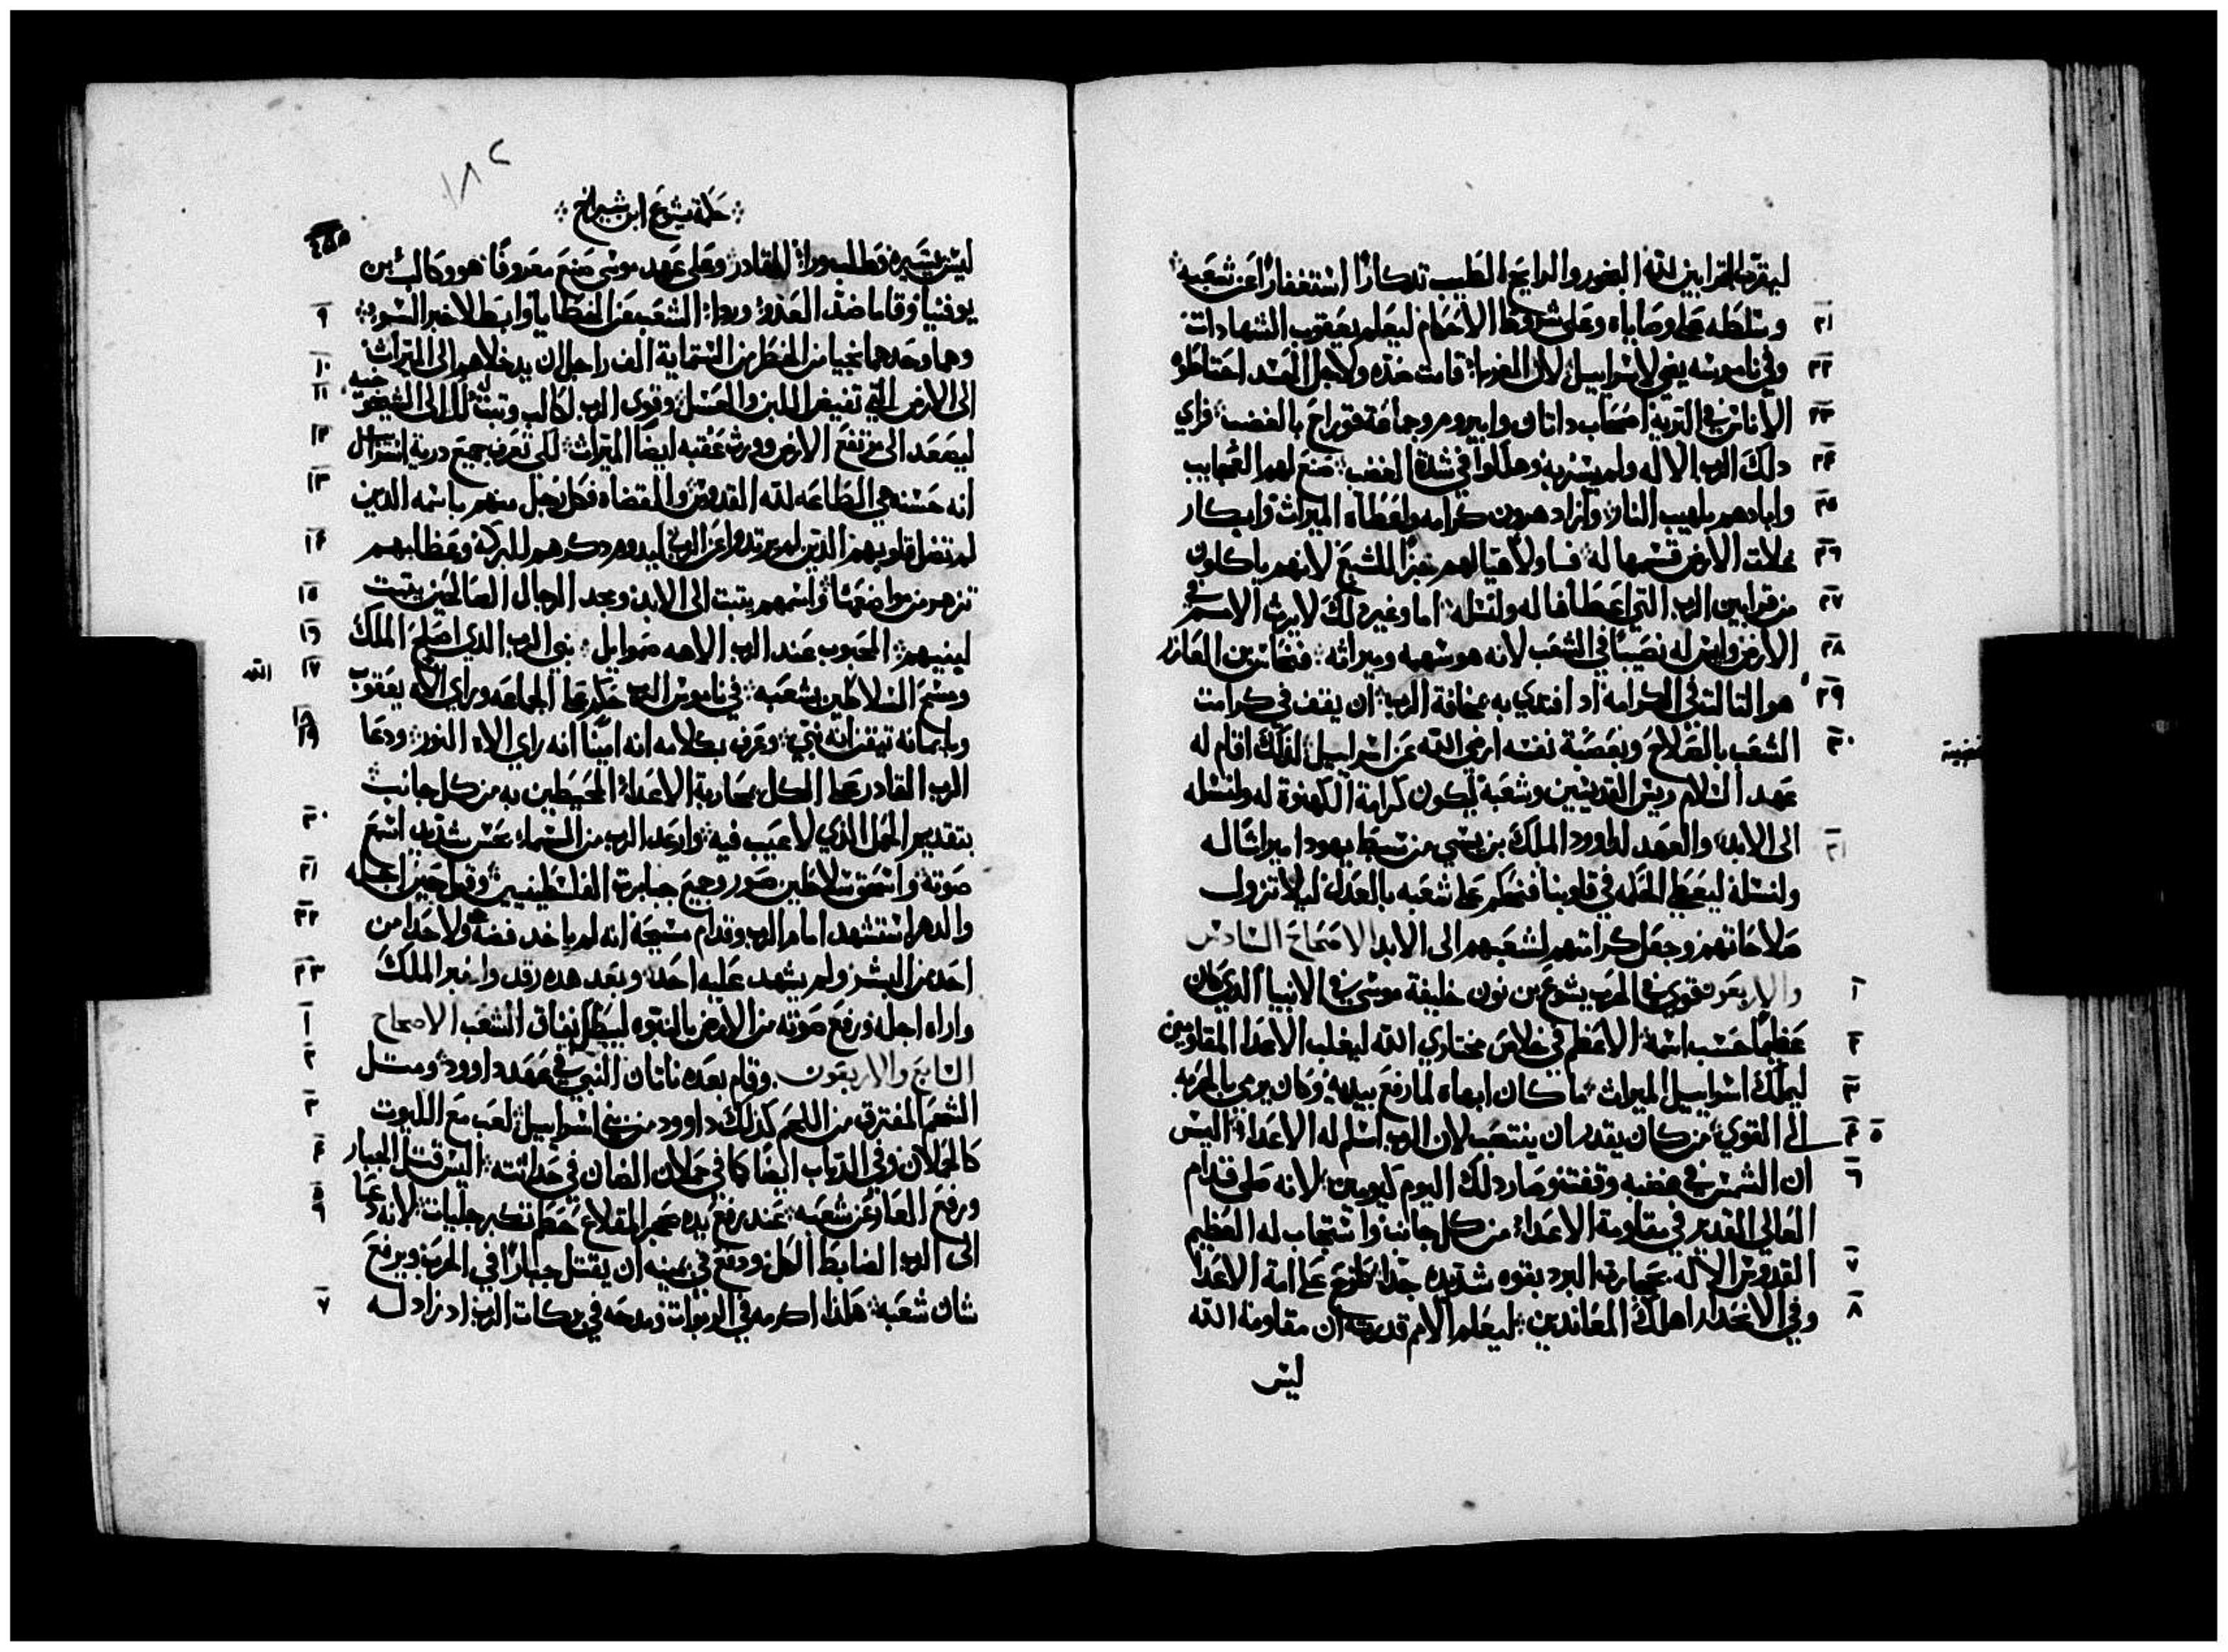 ليقرب القرابين لله البخور والرايحه الطيبه تدكارا استغفارا عن شعبه
٢١ وسلطه على وصاياه وعلى شروط الاحكام ليعلم يعقوب الشهادات
٢٢ وفي ناموسه يضي لاسراييل لان الغربا قامت ضده ولاجل الحسد احتاطوا
٢٣ الاناس في التربه اصحاب داتان وابيروم وجماعة قوراح بالغضب فراي
٢٤ دلك الرب الاله ولم يسر به وهلكوا في شدة الغضب صنع لهم العجايب
٢٥ وابادهم بلهيب النار وازاد هرون كرامه واعطاه الميراث وابكار
٢٦ غلات الارض قسمها له فساولا هيا لهم خبزا للشبع لانهم ياكلون
٢٧ من قرابين الرب التي اعطاها له ولنسله اما وغير دلك لا يرث الامم في
٢٨ الارض وليس له نصيبا في الشعب لانه هو سهمه وميراثه فنحاس بن العازر
٢٩ هو التالت في الكرامه اد اقتدي به بمخافة الرب ان يقف في كرامت
٣٠ الشعب بالصلاح وبعصبة نفسه ارضي الله عن اسراييل لدلك اقام له
عهد السلام ريس القديسين وشعبه ليكون كرامة الكهنوة له ولنسله
٣١ الى الابد والعهد لداوود الملك بن يسي من سبط يهودا ميراثا له
ولنسله ليعطي الحكمه في قلوبنا فنحكم على شعبه بالعدل ليلا تزول
صلاحاتهم وجعل كرامتهم لشعبهم الى الابد الاصحاح السادس
١ والاربعون قوي في الحرب يشوع بن نون خليفة موسى في الانبيا الدي كان
٢ عظيما حسب اسمه الاعظم في خلاص مختاري الله ليغلب الاعدا المقاومين
٣ ليملك اسراييل الميراث ما كان ابهاه لما رفع يديه وكان يرمي بالحربه
٤ ٥ الى القوي من كان يقدر ان ينتصب لان الرب اسلم له الاعدا اليس
٦ ان الشمس في غضبه وقفت وصار دلك اليوم كيومين لانه صلى قدام
العالي القدير في مقاومة الاعدا من كل جانب واستجاب له العظيم
٧ القدوس الاله بحجارة البرد بقوه شديده جدا على امة الاعدا
٨ وفي الانحدار اهلك المعاندين ليعلم الامم قدرته ان مقاومة الله
ليس
١٨٢
حكمة يشوع ابن شيراخ
ليس القادر وعلى عهد موسى صنع معروفا هو وكالب بن
٩ يوفنيا وقاما ضد العدو وردا الشعب عن الخطايا وابطلا خبر السوء
١٠ وهما وحدهما نجيا من الخطر من الستماية الف راجل ان يدخلاهم الى الميراث
١١ الى الارض التي تفيض اللبن والعسل وقوى الرب لكالب وتبت له الى الشيخوخيه
١٢ ليصعد الى مرتفع الارض وورث عقبه ايضا الميراث لكي تعرف جميع درية اسراييل
١٣ انه حسنه هي الطاعه لله القدوس والقضاه فكل رجل منهم باسمه الدين
١٤ لم تضل قلوبهم الدين لم يرتدوا عن الرب ليدوم دكرهم للبركه وعظامهم
١٥ تزهر من مواضعها واسمهم يتبت الى الابد ومجد الرجال الصالحين يتبت
١٦ لبنيهم المحبوب عند الرب الاهه صمواييل نبي الرب الدي اصلح الملك
١٧ ومسح السلاطين بشعبه في ناموس الرب حكم على الجماعه وراي الاله يعقوب الله
١٨ وبايمانه تيقن انه نبي وعرف بكلامه انه امينا انه راي الاله النور ودعا
١٩ الرب القادر على الكل بمحاربة الاعدا المحيطين به من كل جانب
٢٠ بتقديم الحمل الدي لا عيب فيه وارعد الرب من السما بحس شديد اسمع
٢١ صوته وانسحق سلاطين صور وجميع جبابرة الفلسطينيين وقبل حين اجله
٢٢ والدهر استشهد امام الرب وقدام مسيحه انه لم ياخد فضه ولا حدا من
٢٣ احد من البشر ولم يشهد عليه احد وبعد هده رقد واخبر الملك
١ واراه اجله ورفع صوته من الارض بالنبوه ليبطل نفاق الشعب الاصحاح
٢ السابع والاربعون وقام بعده ناتان النبي في عهد داوود ومتل
٣ الشحم المفترق من اللحم كدلك داوود من بني اسراييل لعب مع الليوت
٤ كالحملان وفي الدياب ايضا كما في حملان الضان في حداتته اليس قتل الجبار
٥ ٦ ورفع العار عن شعبه عند رفع يده بحجر المقلاع حطم تكبر جليات لانه دعا
الى الرب الضابط الكل ووضع في يمينه ان يقتل جبارا في الحرب ويرفع
٧ شان شعبه هكذا اكرمه في الربوات ومدحه في بركات الرب اد نزاد له